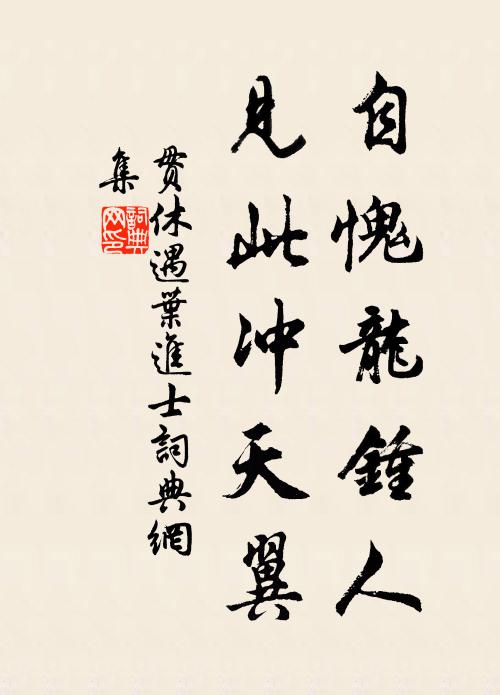 自愧龍鍾人
見此冲天翼
貫休遇葉進士詞典網
集
詞典
网印